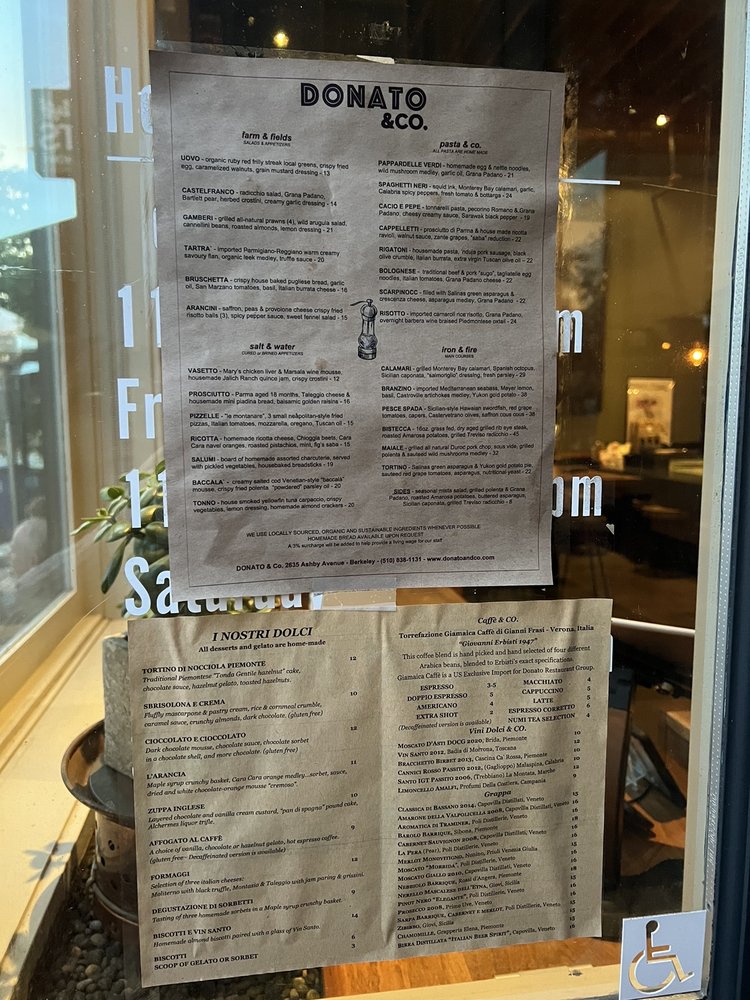 DONATO
&CO.
farm & fields
SALADS & APPETIZERS
UOVO - organic ruby red frilly streak local greens, crispy fried
egg, caramelized walnuts, grain mustard dressing - 13
CASTELFRANCO - radicchio salad, Grana Padano,
Bartlett pear, herbed crostini, creamy garlic dressing - 14
GAMBERI - grilled all-natural prawns (4), wild arugula salad,
cannellini beans, roasted almonds, lemon dressing - 21
TARTRA' - imported Parmigiano-Reggiano warm creamy
savoury flan, organic leek medley, truffle sauce - 20
BRUSCHETTA - crispy house baked pugliese bread, garlic
oil, San Marzano tomatoes, basil, Italian burrata cheese - 16
ARANCINI - saffron, peas & provolone cheese crispy fried
risotto balls (3), spicy pepper sauce, sweet fennel salad - 15
salt & water
CURED or BRINED APPETIZERS
VASETTO - Mary's chicken liver & Marsala wine mousse,
housemade Jalich Ranch quince jam, crispy crostini - 12
PROSCIUTTO - Parma aged 18 months, Taleggio cheese &
housemade mini piadina bread, balsamic golden raisins - 16
PIZZELLE - "le montanare", 3 small neapolitan-style fried
pizzas, Italian tomatoes, mozzarella, oregano, Tuscan oil - 15
RICOTTA - homemade ricotta cheese, Chioggia beets, Cara
Cara navel oranges, roasted pistachios, mint, fig's saba - 15
SALUMI - board of homemade assorted charcuterie, served
with pickled vegetables, housebaked breadsticks - 19
BACCALA' - creamy salted cod Venetian-style "baccalà"
mousse, crispy fried polenta "powdered" parsley oil - 20
TONNO - house smoked yellowfin tuna carpaccio, crispy
vegetables, lemon dressing, homemade almond crackers - 20
pasta & co.
ALL PASTA ARE HOME MADE
PAPPARDELLE VERDI - homemade egg & nettle noodles,
wild mushroom medley, garlic oil, Grana Padano - 21
SPAGHETTI NERI - squid ink, Monterey Bay calamari, garlic,
Calabria spicy peppers, fresh tomato & bottarga - 24
CACIO E PEPE - tonnarelli pasta, pecorino Romano & Grana
Padano, cheesy creamy sauce, Sarawak black pepper - 19
CAPPELLETTI - prosciutto di Parma & house made ricotta
ravioli, walnut sauce, zante grapes, "saba" reduction - 22
RIGATONI - housemade pasta, 'nduja pork sausage, black
olive crumble, Italian burrata, extra virgin Tuscan olive oil - 22
BOLOGNESE - traditional beef & pork "sugo", tagliatelle egg
noodles, Italian tomatoes, Grana Padano cheese - 22
SCARPINOCC - filled with Salinas green asparagus &
crescenza cheese, asparagus medley, Grana Padano - 22
RISOTTO - imported carneroli rice risotto, Grana Padano,
overnight barbera wine braised Piedmontese oxtail - 24
iron & fire
MAIN COURSES
CALAMARI - grilled Monterey Bay calamari, Spanish octopus,
Sicilian caponata, "salmoriglio" dressing, fresh parsley - 29
BRANZINO - imported Mediterranean seabass, Meyer lemon,
basil, Castroville artichokes medley, Yukon gold potato - 38
PESCE SPADA - Sicilian-style Hawaiian swordfish, red grape
tomatoes, capers, Castelvetrano olives, saffron cous cous - 38
BISTECCA - 16oz. grass fed, dry aged grilled rib eye steak,
roasted Amarosa potatoes, grilled Treviso radicchio - 45
MAIALE - grilled all natural Duroc pork chop, sous vide, grilled
polenta & sauteed wild mushrooms medley - 32
TORTINO - Salinas green asparagus & Yukon gold potato pie,
sauteed red grape tomatoes, asparagus, nutritional yeast - 22
SIDES - seasonal mista salad, grilled polenta & Grana
Padano, roasted Amarosa potatoes, buttered asparagus,
Sicilian caponata, grilled Treviso radicchio - 8
WE USE LOCALLY SOURCED, ORGANIC AND SUSTAINABLE INGREDIENTS WHENEVER POSSIBLE
HOMEMADE BREAD AVAILABLE UPON REQUEST
A 3% surcharge will be added to help provide a living wage for our staff
DONATO & Co. 2635 Ashby Avenue - Berkeley - (510) 838-1131 - www.donatoandco.com
11
Fr
11
pm
Saturday
I NOSTRI DOLCI
All desserts and gelato are home-made
TORTINO DI NOCCIOLA PIEMONTE 12
Traditional Piemontese "Tonda Gentile hazelnut" cake,
chocolate sauce, hazelnut gelato, toasted hazelnuts.
SBRISOLONA E CREMA 10
Fluffy mascarpone & pastry cream, rice & cornmeal crumble,
caramel sauce, crunchy almonds, dark chocolate. (gluten free)
CIOCCOLATO E CIOCCOLATO 12
Dark chocolate mousse, chocolate sauce, chocolate sorbet
in a chocolate shell, and more chocolate. (gluten free)
L'ARANCIA 11
Maple syrup crunchy basket, Cara Cara orange medley...sorbet, sauce,
dried and white chocolate-orange mousse "cremoso".
ZUPPA INGLESE 10
Layered chocolate and vanilla cream custard, "pan di spagna" pound cake,
Alchermes liquor trifle.
AFFOGATO AL CAFFÈ 9
A choice of vanilla, chocolate or hazelnut gelato, hot espresso coffee.
(gluten free - Decaffeinated version is available)
FORMAGGI 12
Selection of three italian cheeses:
Moliterno with black truffle, Montasio & Taleggio with jam paring & grissini.
DEGUSTAZIONE DI SORBETTI 9
Tasting of three homemade sorbets in a Maple syrup crunchy basket.
BISCOTTI E VIN SANTO 14
Homemade almond biscotti paired with a glass of Vin Santo.
BISCOTTI 6
SCOOP OF GELATO OR SORBET 3
Caffè & CO.
Torrefazione Giamaica Caffè di Gianni Frasi - Verona, Italia
"Giovanni Erbisti 1947"
This coffee blend is hand picked and hand selected of four different
Arabica beans, blended to Erbisti's exact specifications.
Giamaica Caffè is a US Exclusive Import for Donato Restaurant Group.
ESPRESSO 3.5 MACCHIATO 4
DOPPIO ESPRESSO 5 CAPPUCCINO 5
AMERICANO 4 LATTE 5
EXTRA SHOT 2 ESPRESSO CORRETTO 6
(Decaffeinated version is available) NUMI TEA SELECTION 4
Vini Dolci & CO.
MOSCATO D'ASTI DOCG 2020, Brida, Piemonte 10
VIN SANTO 2012, Badia di Morrona, Toscana 12
BRACCHETTO BIRBET 2013, Cascina Ca' Rossa, Piemonte 10
CANNICI ROSSO PASSITO 2012, (Gaglioppo) Malaspina, Calabria 10
SANTO IGT PASSITO 2006, (Trebbiano) La Montata, Marche 12
LIMONCELLO AMALFI, Profumi Della Costiera, Campania 9
Grappa
CLASSICA DI BASSANO 2014, Capovilla Distillati, Veneto 15
AMARONE DELLA VALPOLICELLA 2008, Capovilla Distillati, Veneto 16
AROMATICA DI TRAMINER, Poli Distillerie, Veneto 16
BAROLO BARRIQUE, Sibona, Piemonte 18
CABERNET SAUVIGNON 2008, Capovilla Distillati, Veneto
LA PERA (Pear), Poli Distillerie, Veneto
MERLOT MONOVITIGNO, Nonino, Friuli Venezia Giulia
MOSCATO "MORBIDA", Poli Distillerie, Veneto
MOSCATO GIALLO 2010, Capovilla Distillati, Veneto
NEBBIOLO BARRIQUE, Rossi d'Angera, Piemonte
NERELLO MASCALESE DELL'ETNA, Giovi, Sicilia
PINOT NERO "ELEGANTE", Poli Distillerie, Veneto
PROSECCO 2008, Prime Uve, Veneto
SARPA BARRIQUE, CABERNET E MERLOT, Poli Distillerie, Veneto
ZIBIBBO, Giovi, Sicilia
CHAMOMILLE, Grapperia Elena, Piemonte
BIRRA DISTILLATA "ITALIAN BEER SPIRIT", Capovilla, Veneto